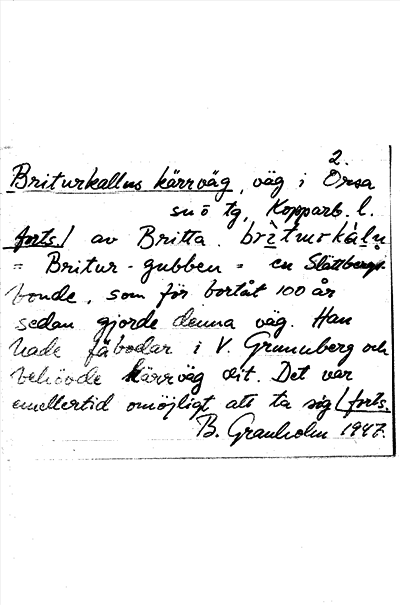 2.
Briturkallns kärrväg, väg i Orsa
snö tg, Kopparb. l.
forts./ av Britta. brìtmskàln
= Britur-gubben = en Slättbergs-
bonde, som för bortåt 100 år
sedan gjorde denna väg. Han
hade fäbodar i V. Grunuberg och
behövde kärrväg dit. Det var
emellertid omöjligt att ta sig /forts.
B. Granholm 1947.